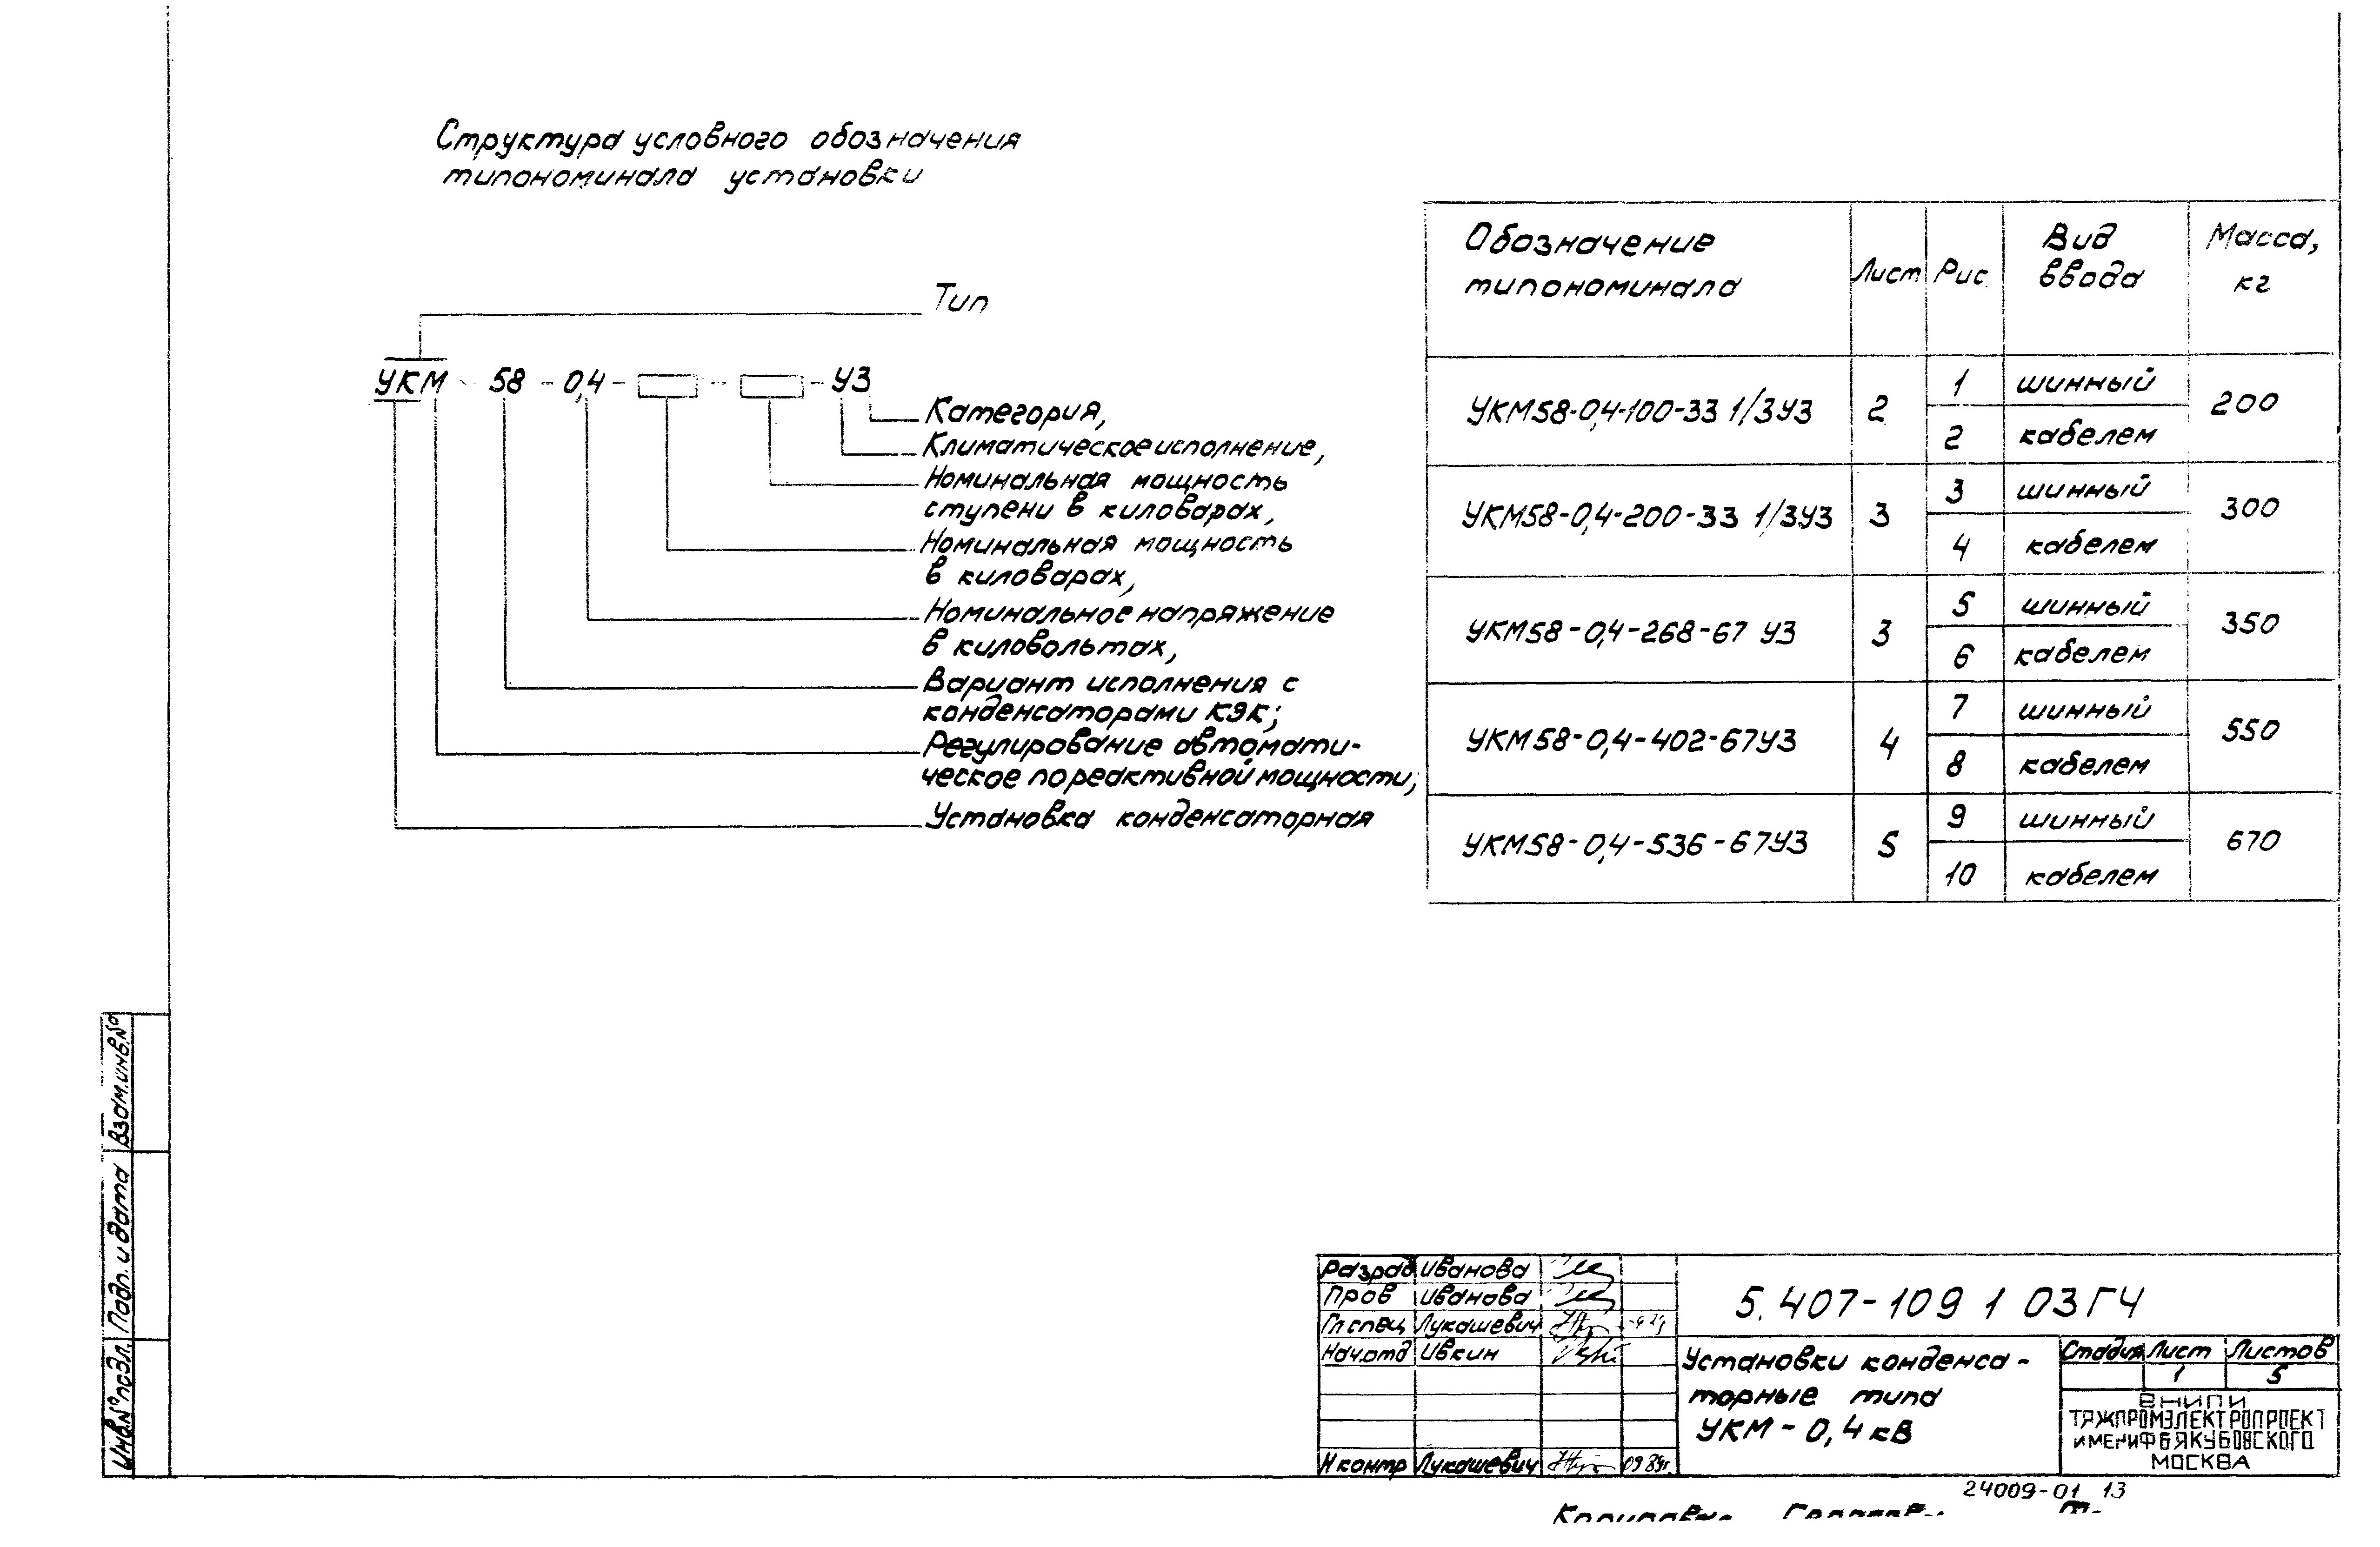 Структура условного обозначения
типономинала установки
Тип
УКМ 58 - 0,4 - - - У3
Категория,
Климатическое исполнение,
Номинальная мощность
ступени в киловарах,
Номинальная мощность
в киловарах,
Номинальное напряжение
в киловольтах,
Вариант исполнения с
конденсаторами КЭК;
Регулирование автомати-
ческое по реактивной мощности;
Установка конденсаторная
Обозначение
типономинала
Лист
Рис
Вид
ввода
Масса,
кг
УКМ58-0,4-100-33 1/3У3 2 200
1 шинный
2 кабелем
УКМ58-0,4-200-33 1/3У3 3 300
3 шинный
4 кабелем
УКМ58-0,4-268-67 У3 3 350
5 шинный
6 кабелем
УКМ58-0,4-402-67У3 4 550
7 шинный
8 кабелем
УКМ58-0,4-536-67У3 5 670
9 шинный
10 кабелем
Взам.инв.№
Подп. и дата
Инв.№подл.
Разраб Иванова
Пров Иванова
Гл спец Лукашевич
Нач.отд Ивкин
Н контр Лукашевич 09 89г.
5.407-109 1 03ГЧ
Установки конденса-
торные типа
УКМ-0,4кВ
Стадия Лист Листов
1 5
ВНИПИ
ТЯЖПРОМЭЛЕКТРОПРОЕКТ
ИМЕНИ Ф Б ЯКУБОВСКОГО
МОСКВА
24009-01 13